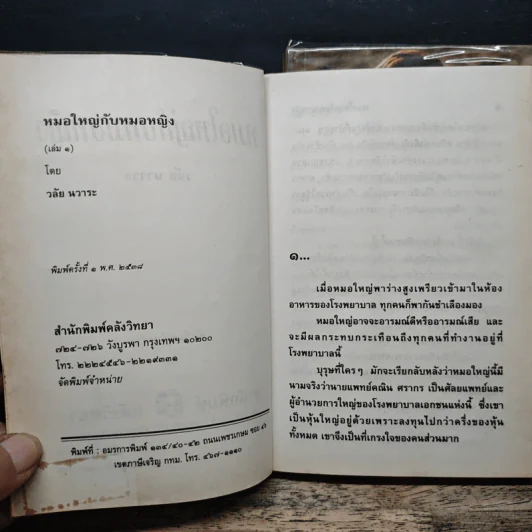 หมอใหญ่กับหมอหญิง
(เล่ม ๑)
โดย
วลัย นวาระ
พิมพ์ครั้งที่ ๑ พ.ศ. ๒๕๓๘
สำนักพิมพ์คลังวิทยา
๗๒๔-๗๒๖ วังบูรพา กรุงเทพฯ ๑๐๒๐๐
โทร. ๒๒๒๔๕๔๖-๒๒๑๙๓๓๑
จัดพิมพ์จำหน่าย
พิมพ์ที่ : อมรการพิมพ์ ๑๓๔/๔๐-๔๒ ถนนเพชรเกษม ซอย
เขตภาษีเจริญ กทม. โทร. ๔๖๗-๑๑๑๐
๑...
เมื่อหมอใหญ่พาร่างสูงเพรียวเข้ามาในห้อง
อาหารของโรงพยาบาล ทุกคนก็พากันชำเลืองมอง
หมอใหญ่อาจจะอารมณ์ดีหรืออารมณ์เสีย และ
จะมีผลกระทบกระเทือนถึงทุกคนที่ทำงานอยู่ที่
โรงพยาบาลนี้
บุรุษที่ใครๆ มักจะเรียกลับหลังว่าหมอใหญ่นี้มี
นามจริงว่านายแพทย์คณิน ศรากร เป็นศัลยแพทย์และ
ผู้อำนวยการใหญ่ของโรงพยาบาลเอกชนแห่งนี้ ซึ่งเขา
เป็นหุ้นใหญ่อยู่ด้วยเพราะลงทุนไปกว่าครึ่งของหุ้น
ทั้งหมด เขาจึงเป็นที่เกรงใจของคนส่วนมาก